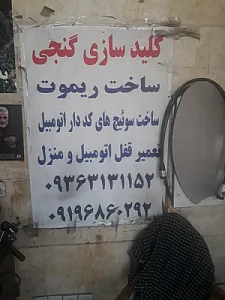 کلید سازی گنجی
ساخت ریموت
ساخت سوئیچ های کد دار اتومبیل
تعمیر قفل اتومبیل و منزل
۰۹۳۶۳۱۳۱۱۵۲
۰۹۱۹۶۸۶۰۲۹۲